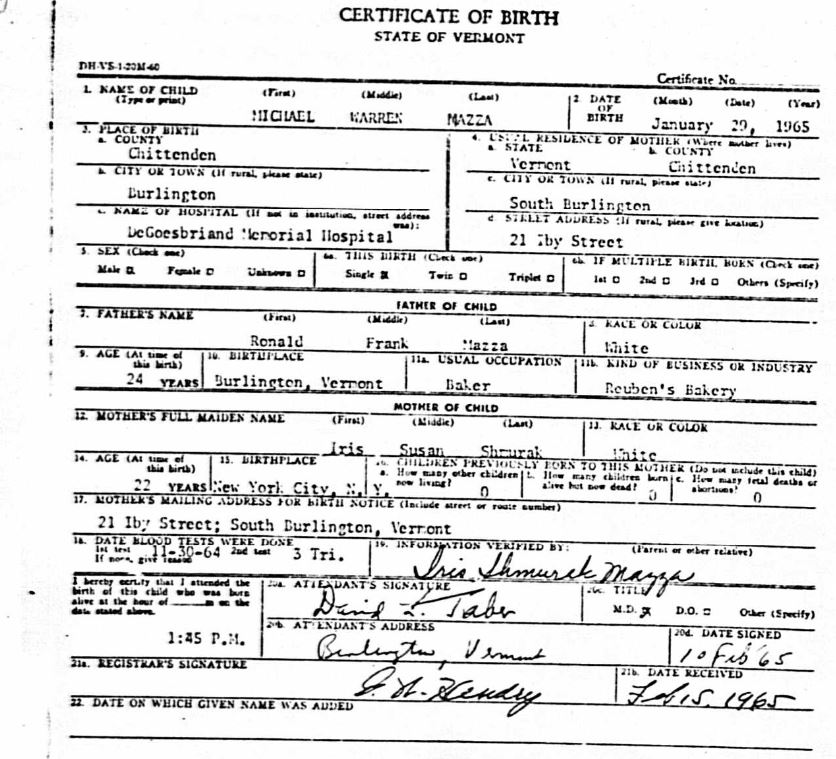 CERTIFICATE OF BIRTH
STATE OF VERMONT
DH-VS-1-20M-60
Certificate No.
1. NAME OF CHILD (First) (Middle) (Last) 2. DATE OF BIRTH (Month) (Date) (Year)
(Type or print)
MICHAEL WARREN MAZZA January 29, 1965
3. PLACE OF BIRTH 4. USUAL RESIDENCE OF MOTHER (Where mother lives)
a. COUNTY a. STATE b. COUNTY
Chittenden Vermont Chittenden
b. CITY OR TOWN (If rural, please state) c. CITY OR TOWN (If rural, please state)
Burlington South Burlington
c. NAME OF HOSPITAL (If not in institution, street address was): d. STREET ADDRESS (If rural, please give location)
DeGoesbriand Memorial Hospital 21 Iby Street
5. SEX (Check one) 6a. THIS BIRTH (Check one) 6b. IF MULTIPLE BIRTH, BORN (Check one)
Male Female Unknown Single Twin Triplet 1st 2nd 3rd Others (Specify)
FATHER OF CHILD
7. FATHER'S NAME (First) (Middle) (Last) 8. RACE OR COLOR
Ronald Frank Mazza White
9. AGE (At time of this birth) 10. BIRTHPLACE 11a. USUAL OCCUPATION 11b. KIND OF BUSINESS OR INDUSTRY
24 YEARS Burlington, Vermont Baker Reuben's Bakery
MOTHER OF CHILD
12. MOTHER'S FULL MAIDEN NAME (First) (Middle) (Last) 13. RACE OR COLOR
Iris Susan Shmurak White
14. AGE (At time of this birth) 15. BIRTHPLACE 16. CHILDREN PREVIOUSLY BORN TO THIS MOTHER (Do not include this child)
a. How many other children now living? b. How many children born alive but now dead? c. How many fetal deaths or abortions?
22 YEARS New York City, N. Y. 0 0 0
17. MOTHER'S MAILING ADDRESS FOR BIRTH NOTICE (Include street or route number)
21 Iby Street; South Burlington, Vermont
18. DATE BLOOD TESTS WERE DONE 19. INFORMATION VERIFIED BY: (Parent or other relative)
1st test 11-30-64 2nd test 3 Tri.
If none, give reason
Iris Shmurak Mazza
I hereby certify that I attended the birth of this child who was born alive at the hour of m on the date stated above.
20a. ATTENDANT'S SIGNATURE 20c. TITLE
David L. Taber M.D. D.O. Other (Specify)
1:45 P.M.
20b. ATTENDANT'S ADDRESS 20d. DATE SIGNED
Burlington, Vermont 10 Feb '65
21a. REGISTRAR'S SIGNATURE 21b. DATE RECEIVED
Hendry Feb 15, 1965
22. DATE ON WHICH GIVEN NAME WAS ADDED